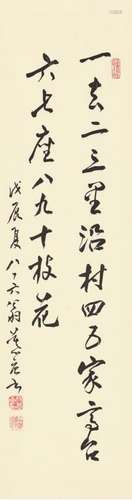 一去二三里沿村四五家高台
六七座八九十枝花
戊辰夏八十六翁